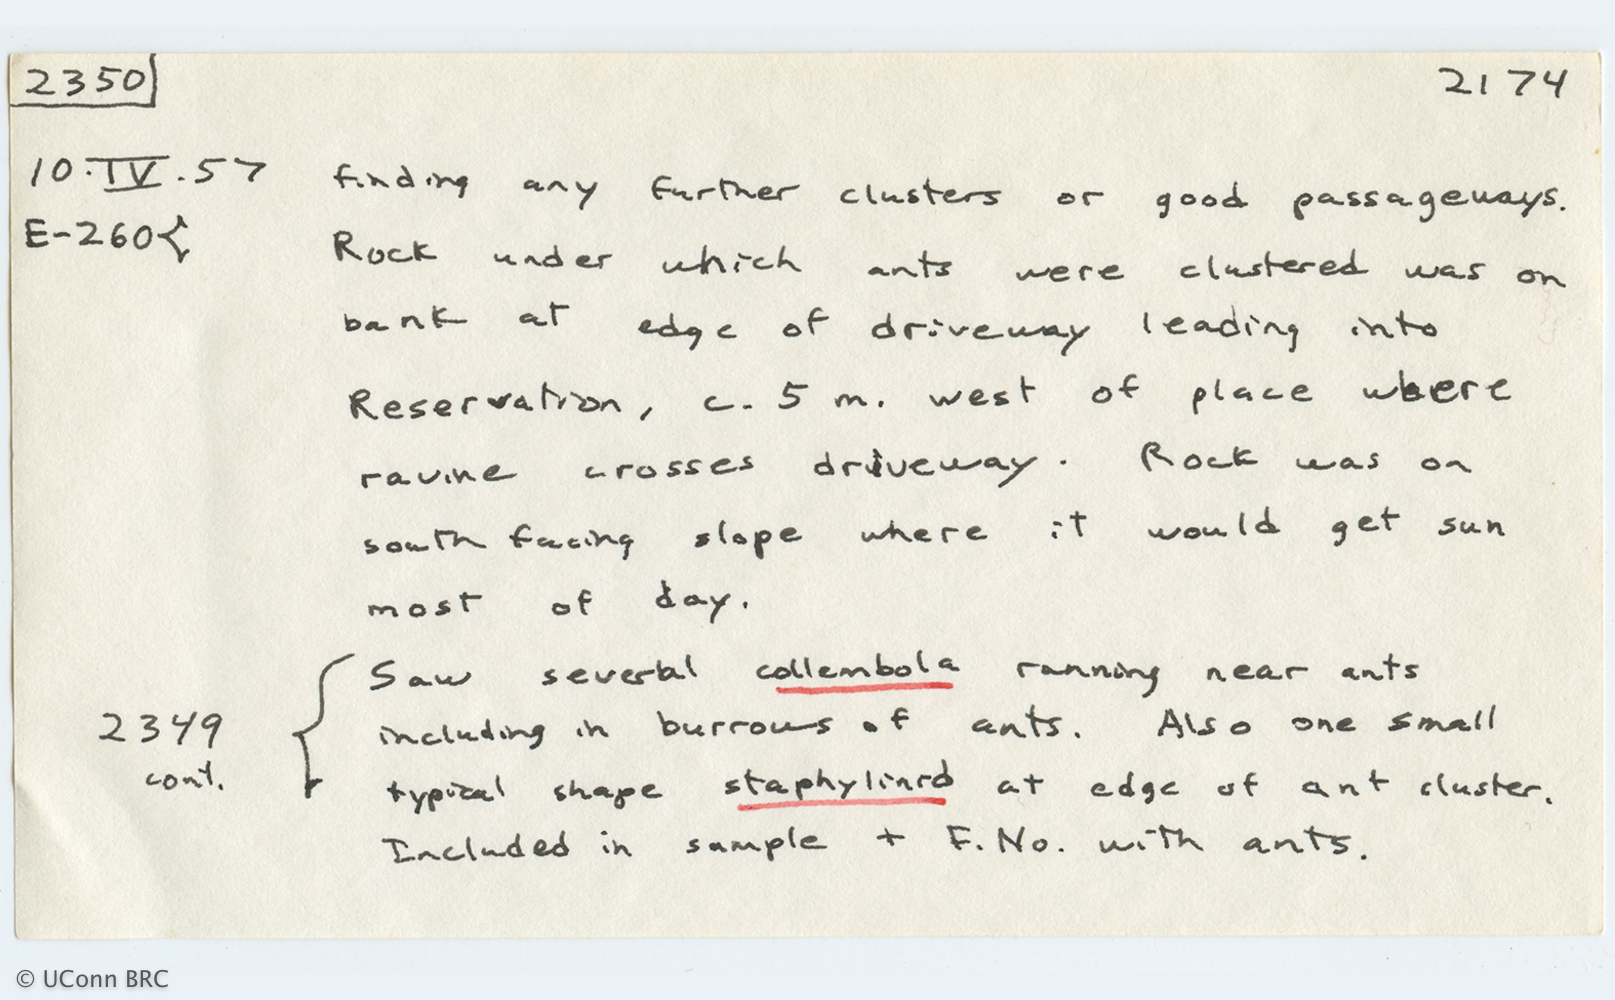 2350 2174
10.IV.57 finding any further clusters or good passageways.
E-260{ Rock under which ants were clustered was on
bank at edge of driveway leading into
Reservation, c. 5 m. west of place where
ravine crosses driveway. Rock was on
south facing slope where it would get sun
most of day.
Saw several collembola running near ants
2349 { including in burrows of ants. Also one small
cont. typical shape staphylinid at edge of ant cluster.
Included in sample + F. No. with ants.
© UConn BRC